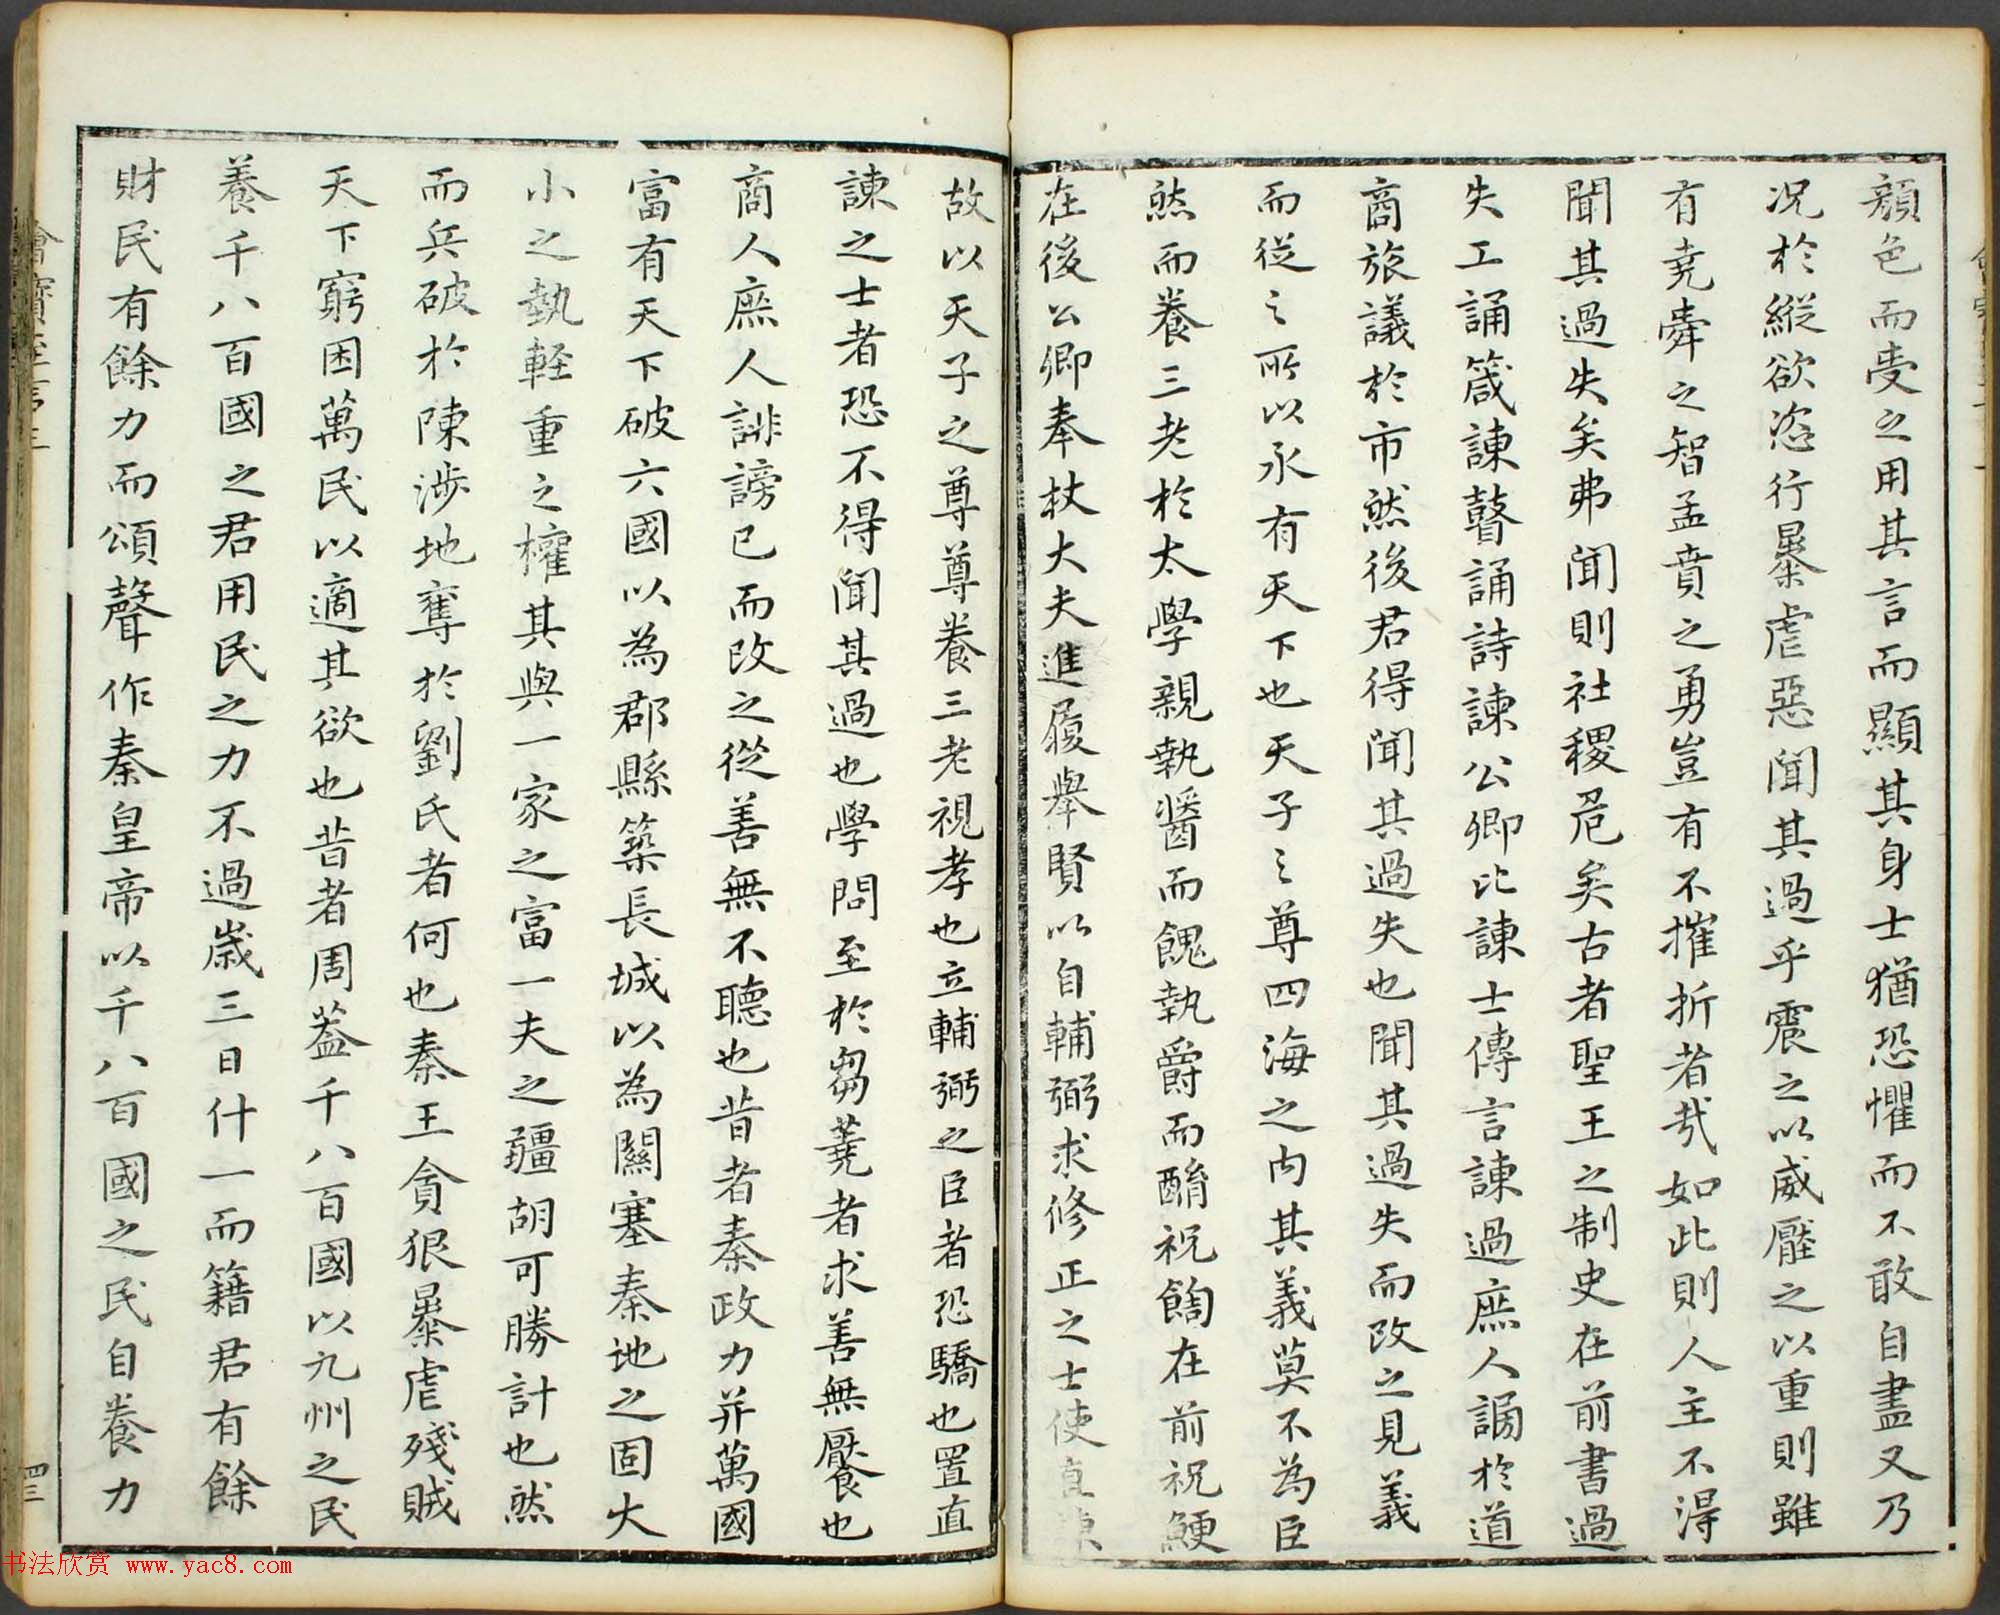 顔色而受之用其言而顯其身士猶恐懼而不敢自盡又乃
况於縱欲恣行暴虐惡聞其過乎震之以威壓之以重則雖
有堯舜之智孟賁之勇豈有不摧折者㢤如此則人主不得
聞其過失矣弗聞則社稷危矣古者聖王之制史在前書過
失工誦箴諫瞽誦詩諫公卿比諫士傳言諫過庶人謗於道
商旅議於市然後君得聞其過失也聞其過失而改之見義
而從之所以永有天下也天子之尊四海之内其義莫不為臣
然而養三老於太學親執醬而餽執爵而酳祝餶在前祝鯁
在後公卿奉杖大夫進履舉賢以自輔弼求修正之士使直諫
故以天子之尊尊養三老視孝也立輔弼之臣者恐驕也置直
諫之士者恐不得聞其過也學問至於芻蕘者求善無饜也
商人庶人誹謗已而改之從善無不聽也昔者秦政力并萬國
富有天下破六國以為郡縣築長城以為關塞秦地之固大
小之埶輕重之權其與一家之富一夫之彊胡可勝計也然
而兵破於陳涉地奪於劉氏者何也秦王貪狠暴虐殘賊
天下窮困萬民以適其欲也昔者周葢千八百國以九州之民
養千八百國之君用民之力不過歲三日什一而籍君有餘
財民有餘力而頌聲作秦皇帝以千八百國之民自養力
四三
书法欣赏 www.yac8.com